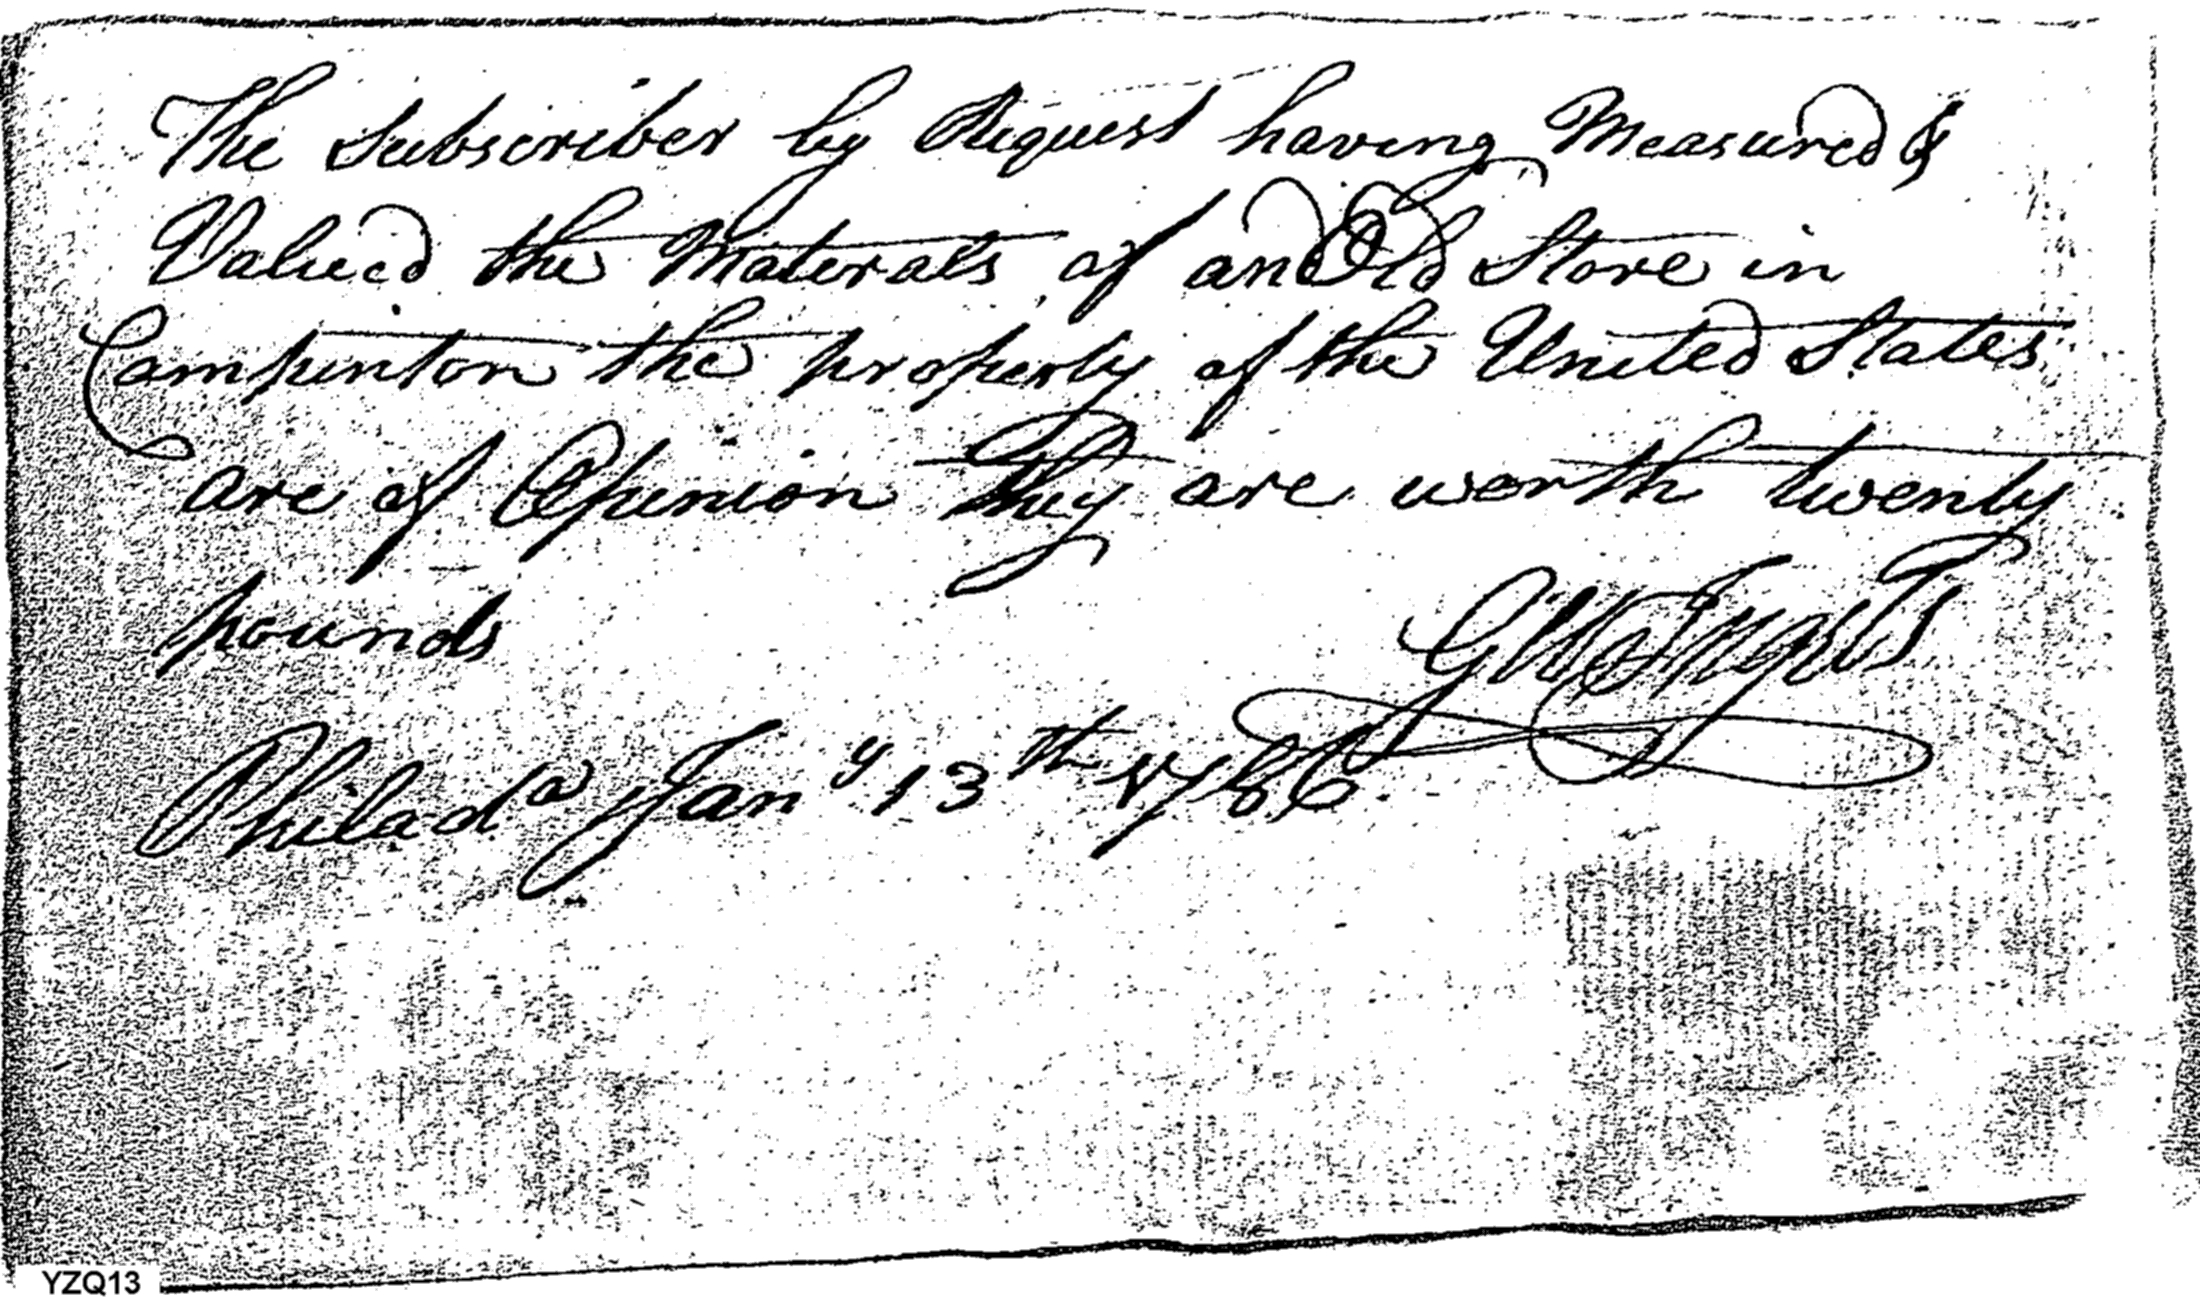 The Subscriber by Request having Measured &
Valued the Materals of an Old Store in
Campinton the property of the United States
are of Opinion they are worth twenty
pounds
Philad<sup>a</sup> Jan<sup>y</sup> 13<sup>th</sup> 1786.
YZQ13